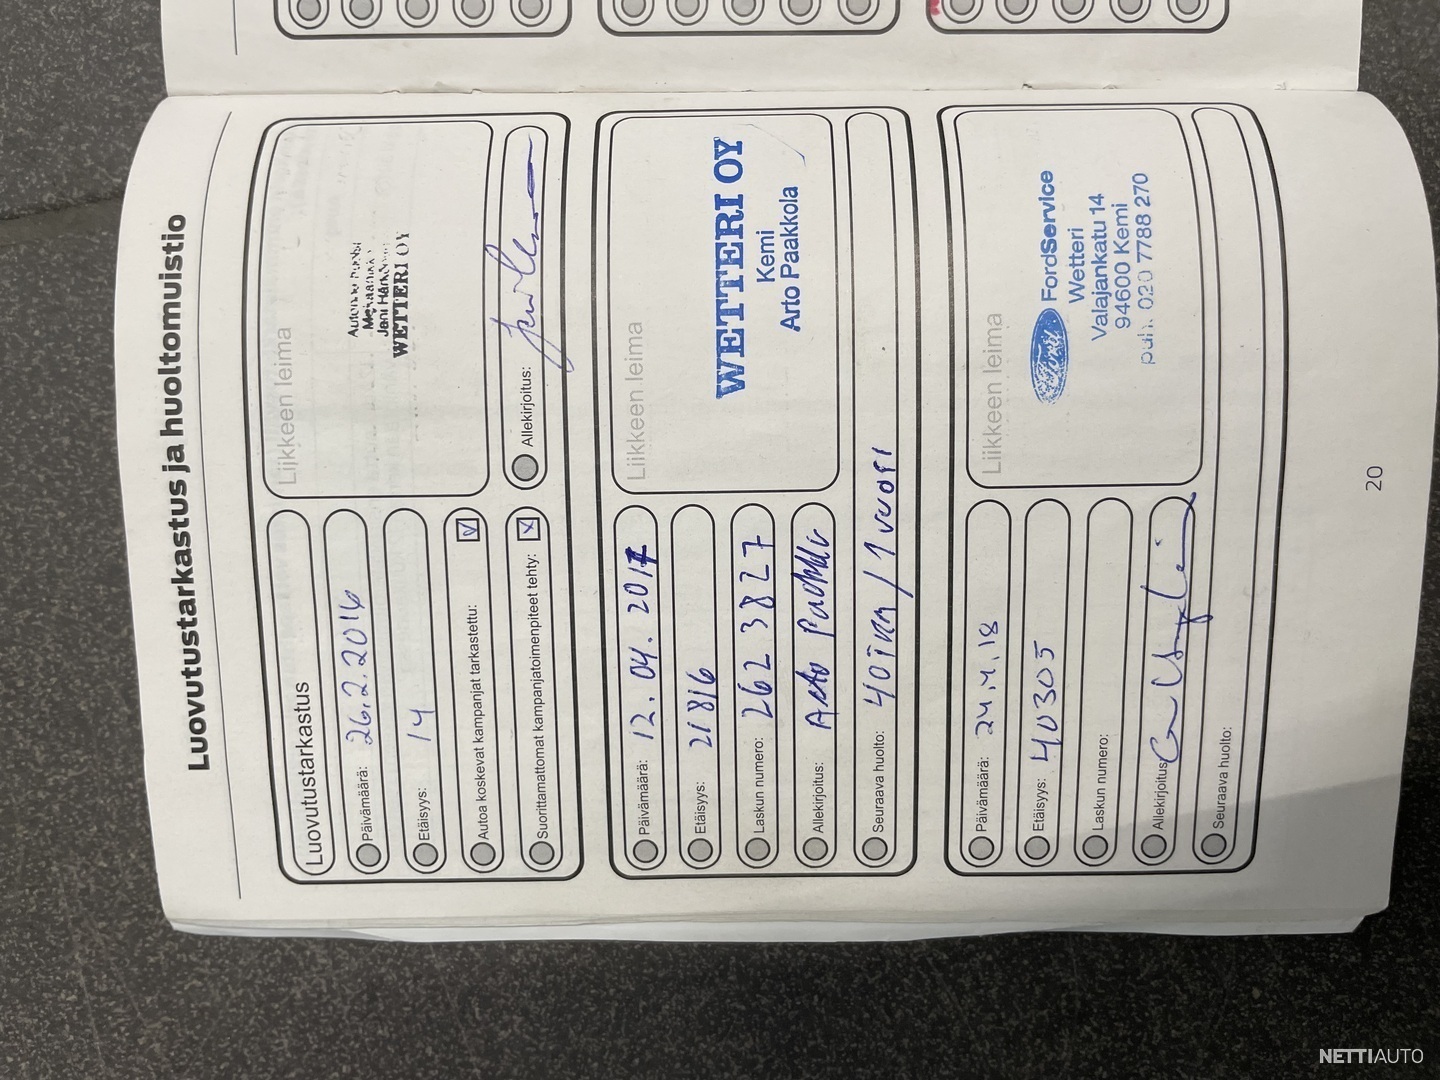 Luovutustarkastus ja huoltomuistio
Luovutustarkastus
Päivämäärä: 26.2.2016
Etäisyys: 14
Autoa koskevat kampanjat tarkastettu:
Suorittamattomat kampanjatoimenpiteet tehty:
Liikkeen leima
Jani
WETTERI OY
Allekirjoitus:
Päivämäärä: 12.04.2017
Etäisyys: 21816
Laskun numero: 262 3827
Allekirjoitus: Arto
Seuraava huolto: 40 / 1 vuosi
Liikkeen leima
WETTERI OY
Kemi
Arto Paakkola
Päivämäärä: 24.4.18
Etäisyys: 40305
Laskun numero:
Allekirjoitus:
Seuraava huolto:
Liikkeen leima
Ford FordService
Wetteri
Valajankatu 14
94600 Kemi
puh. 020 7788 270
20
NETTIAUTO